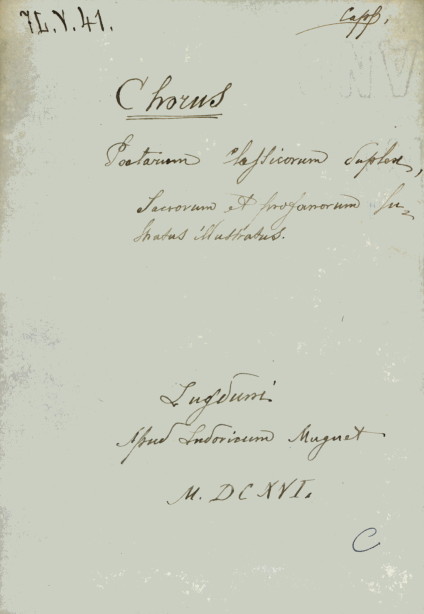 7L.V.41.
Capſſ.
Chorus
Poetarum claſſicorum duplex,
Sacrorum et profanorum lu-
stratus illustratus.
Lugduni
Apud Ludovicum Muguet
M. DCXVI.
C